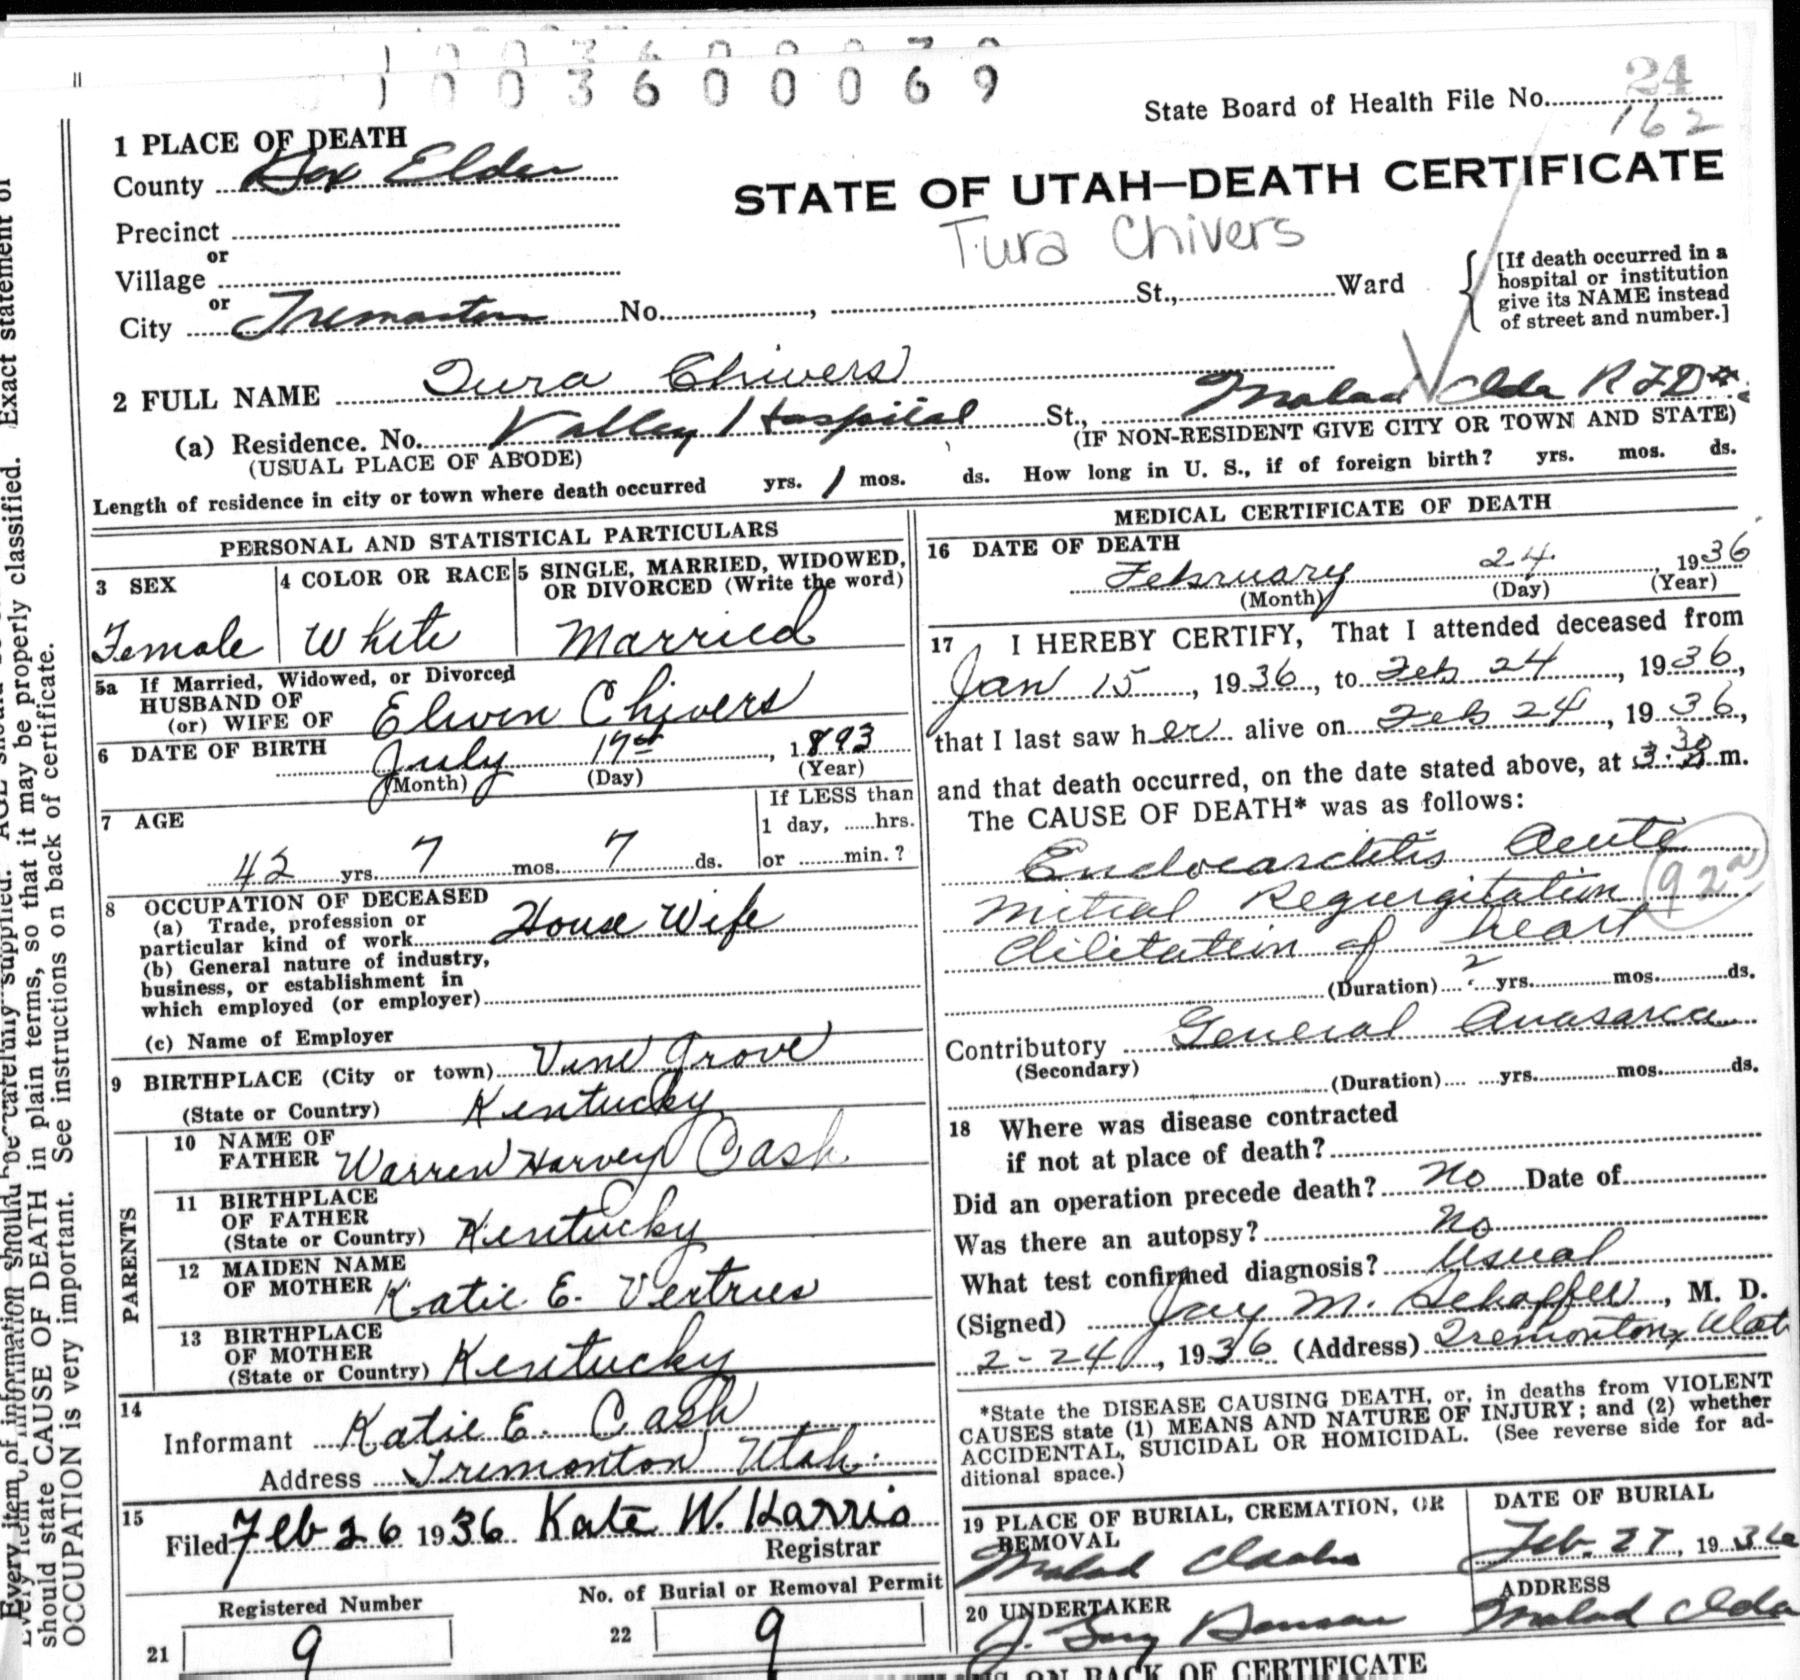 1003600069
State Board of Health File No. 24
162
1 PLACE OF DEATH
County Box Elder
STATE OF UTAH—DEATH CERTIFICATE
Tura Chivers
Precinct
or
Village
or
City Tremonton No. , St., Ward
[If death occurred in a
hospital or institution
give its NAME instead
of street and number.]
2 FULL NAME Tura Chivers
(a) Residence. No. Valley Hospital St., Malad Ida RFD
(USUAL PLACE OF ABODE) (IF NON-RESIDENT GIVE CITY OR TOWN AND STATE)
Length of residence in city or town where death occurred yrs. 1 mos. ds. How long in U. S., if of foreign birth? yrs. mos. ds.
PERSONAL AND STATISTICAL PARTICULARS
3 SEX
Female
4 COLOR OR RACE
White
5 SINGLE, MARRIED, WIDOWED,
OR DIVORCED (Write the word)
Married
5a If Married, Widowed, or Divorced
HUSBAND OF
(or) WIFE OF Elwin Chivers
6 DATE OF BIRTH July 17, 1893
(Month) (Day) (Year)
7 AGE
42 yrs. 7 mos. 7 ds.
If LESS than
1 day, hrs.
or min.?
8 OCCUPATION OF DECEASED
(a) Trade, profession or
particular kind of work House Wife
(b) General nature of industry,
business, or establishment in
which employed (or employer)
(c) Name of Employer
9 BIRTHPLACE (City or town) Vine Grove
(State or Country) Kentucky
PARENTS
10 NAME OF
FATHER Warren Harvey Cash
11 BIRTHPLACE
OF FATHER
(State or Country) Kentucky
12 MAIDEN NAME
OF MOTHER Katie E. Vertrues
13 BIRTHPLACE
OF MOTHER
(State or Country) Kentucky
14
Informant Katie E. Cash
Address Tremonton Utah.
15
Filed Feb 26 1936 Kate W. Harris
Registrar
Registered Number
21 9
No. of Burial or Removal Permit
22 9
MEDICAL CERTIFICATE OF DEATH
16 DATE OF DEATH
February 24, 1936
(Month) (Day) (Year)
17 I HEREBY CERTIFY, That I attended deceased from
Jan 15, 1936, to Feb 24, 1936,
that I last saw her alive on Feb 24, 1936,
and that death occurred, on the date stated above, at 3:30 m.
The CAUSE OF DEATH* was as follows:
Endocarditis Acute
Mitral Regurgitation 92a
dilitation of heart
(Duration) 2 yrs. mos. ds.
Contributory General Anasarca
(Secondary)
(Duration) yrs. mos. ds.
18 Where was disease contracted
if not at place of death?
Did an operation precede death? No Date of
Was there an autopsy? No
What test confirmed diagnosis? Usual
(Signed) Jay M. Schaffer, M. D.
2-24, 1936 (Address) Tremonton, Utah
*State the DISEASE CAUSING DEATH, or, in deaths from VIOLENT
CAUSES state (1) MEANS AND NATURE OF INJURY; and (2) whether
ACCIDENTAL, SUICIDAL OR HOMICIDAL. (See reverse side for ad-
ditional space.)
19 PLACE OF BURIAL, CREMATION, OR
REMOVAL
Malad Idaho
DATE OF BURIAL
Feb. 27, 1936
20 UNDERTAKER
J. Hanson
ADDRESS
Malad Ida
ON BACK OF CERTIFICATE
Every item of information should be carefully supplied.
should state CAUSE OF DEATH in plain terms, so that it may be properly classified. Exact statement of
OCCUPATION is very important. See instructions on back of certificate.